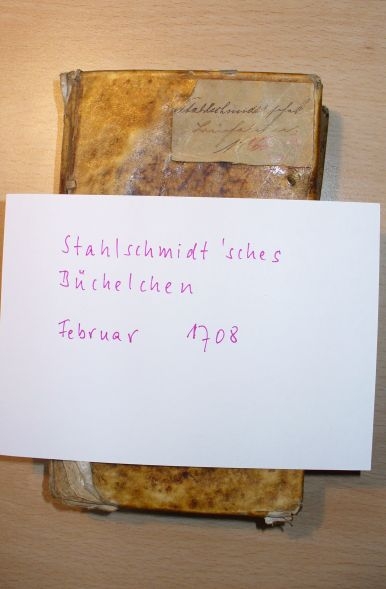 Stahlschmidt'sches
Stahlschmidt'sches
Büchelchen
Februar 1708